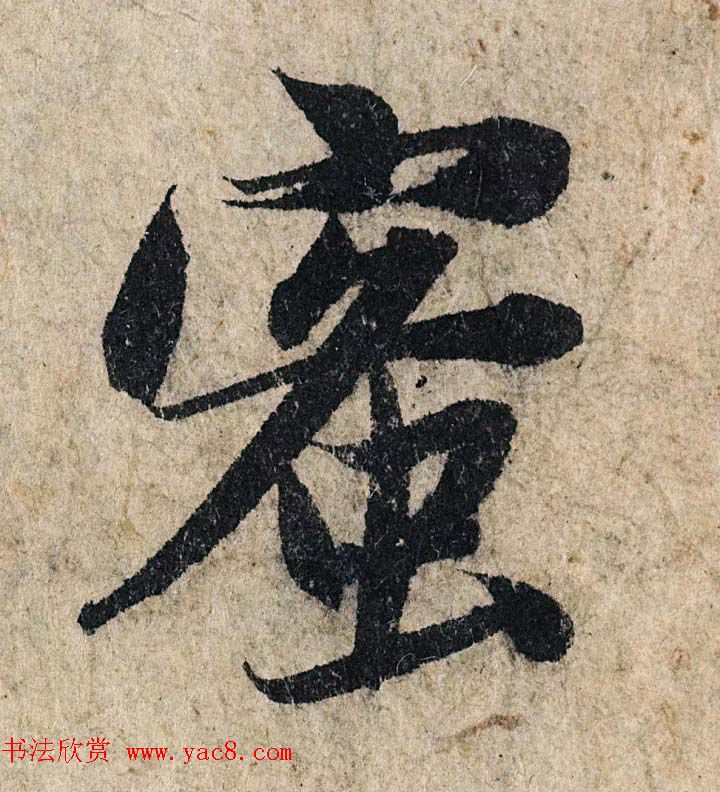 蜜
书法欣赏 www.yac8.com